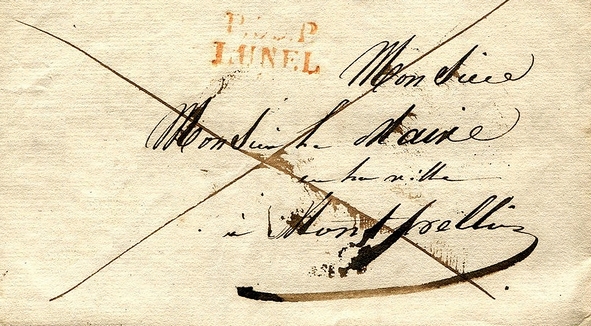 P.P.P
LUNEL
Monsieur
Monsieur Le Maire
en la ville
à Montpellier